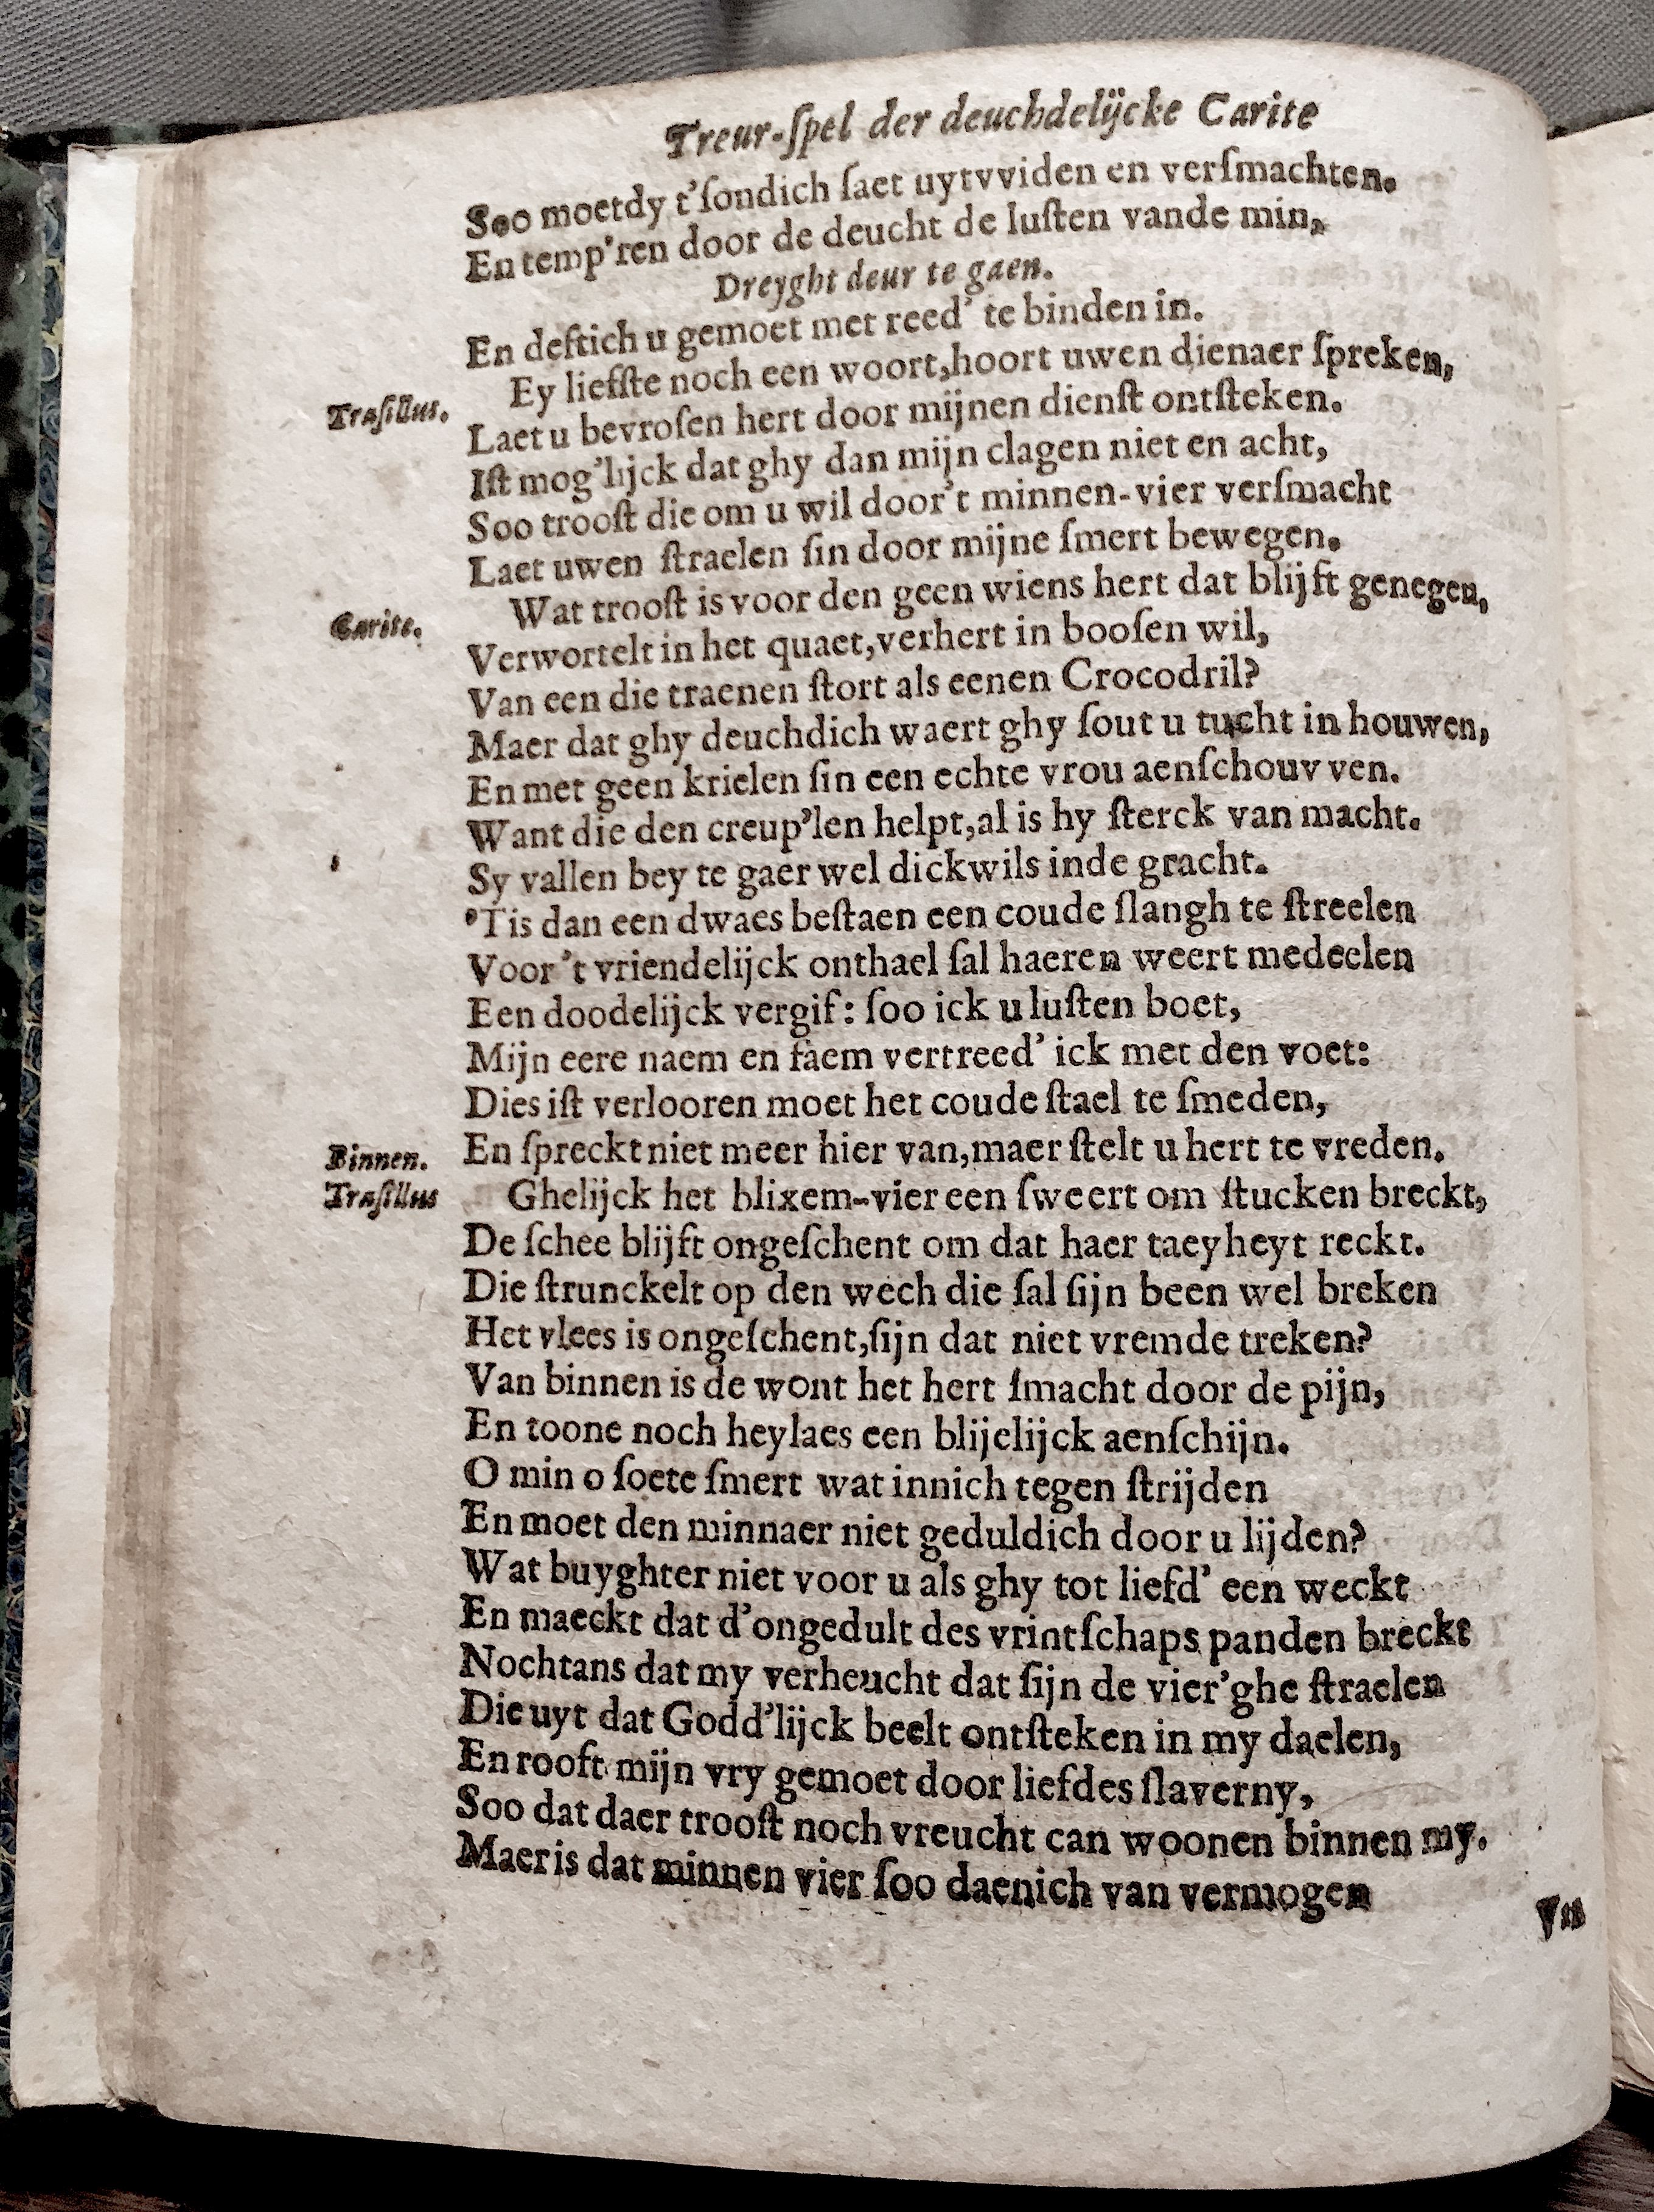 Treur-ſpel der deuchdelijcke Carite
Soo moetdy t'ſondich ſaet uytvviden en verſmachten.
En temp'ren door de deucht de luſten vande min,
Dreyght deur te gaen.
En deftich u gemoet met reed' te binden in.
Traſillus. Ey liefſte noch een woort, hoort uwen dienaer ſpreken,
Laet u bevroſen hert door mijnen dienſt ontſteken.
Iſt mog'lijck dat ghy dan mijn clagen niet en acht,
Soo trooſt die om u wil door't minnen-vier verſmacht
Laet uwen ſtraelen ſin door mijne ſmert bewegen.
Carite. Wat trooſt is voor den geen wiens hert dat blijft genegen,
Verwortelt in het quaet, verhert in booſen wil,
Van een die traenen ſtort als eenen Crocodril?
Maer dat ghy deuchdich waert ghy ſout u tucht in houwen,
En met geen krielen ſin een echte vrou aenſchouvven.
Want die den creup'len helpt, al is hy ſterck van macht.
Sy vallen bey te gaer wel dickwils inde gracht.
'Tis dan een dwaes beſtaen een coude ſlangh te ſtreelen
Voor 't vriendelijck onthael ſal haeren weert medeelen
Een doodelijck vergif: ſoo ick u luſten boet,
Mijn eere naem en faem vertreed' ick met den voet:
Dies iſt verlooren moet het coude ſtael te ſmeden,
En ſpreckt niet meer hier van, maer ſtelt u hert te vreden.
Binnen.
Traſillus Ghelijck het blixem-vier een ſweert om ſtucken breckt,
De ſchee blijft ongeſchent om dat haer taeyheyt reckt.
Die ſtrunckelt op den wech die ſal ſijn been wel breken
Het vlees is ongeſchent, ſijn dat niet vremde treken?
Van binnen is de wont het hert ſmacht door de pijn,
En toone noch heylaes een blijelijck aenſchijn.
O min o ſoete ſmert wat innich tegen ſtrijden
En moet den minnaer niet geduldich door u lijden?
Wat buyghter niet voor u als ghy tot liefd' een weckt
En maeckt dat d'ongedult des vrintſchaps panden breckt
Nochtans dat my verheucht dat ſijn de vier'ghe ſtraelen
Die uyt dat Godd'lijck beelt ontſteken in my daelen,
En rooft mijn vry gemoet door liefdes ſlaverny,
Soo dat daer trooſt noch vreucht can woonen binnen my.
Maer is dat minnen vier ſoo daenich van vermogen